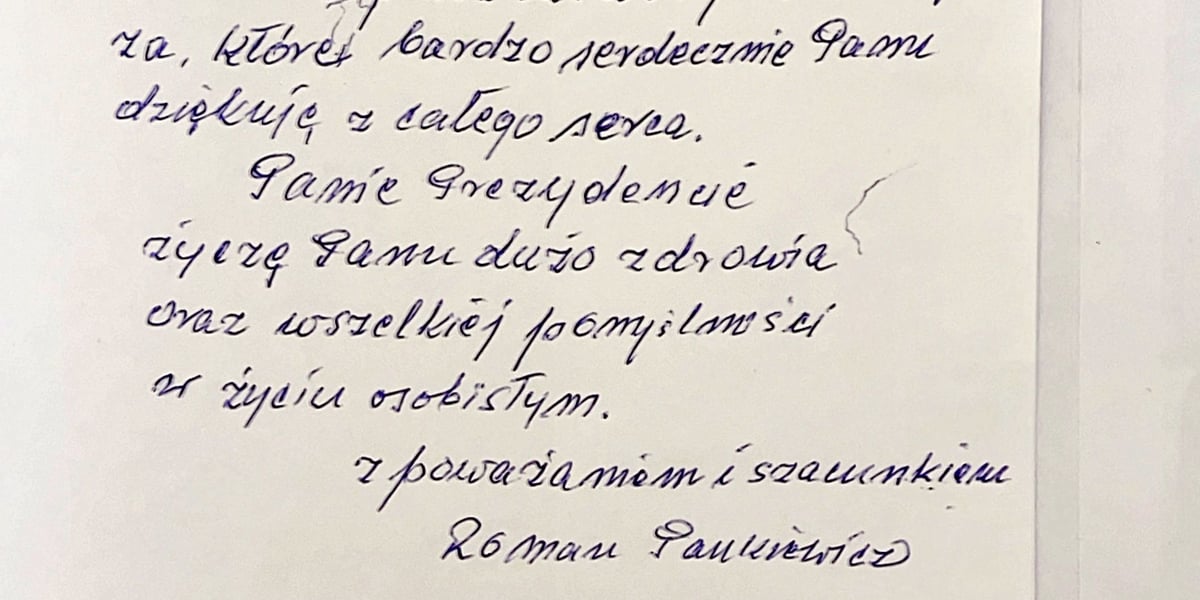 za, której bardzo serdecznie Panu
dziękuję z całego serca.
Panie Prezydencie
życzę Panu dużo zdrowia
oraz wszelkiej pomyślności
w życiu osobistym.
z poważaniem i szacunkiem
Roman Pankiewicz